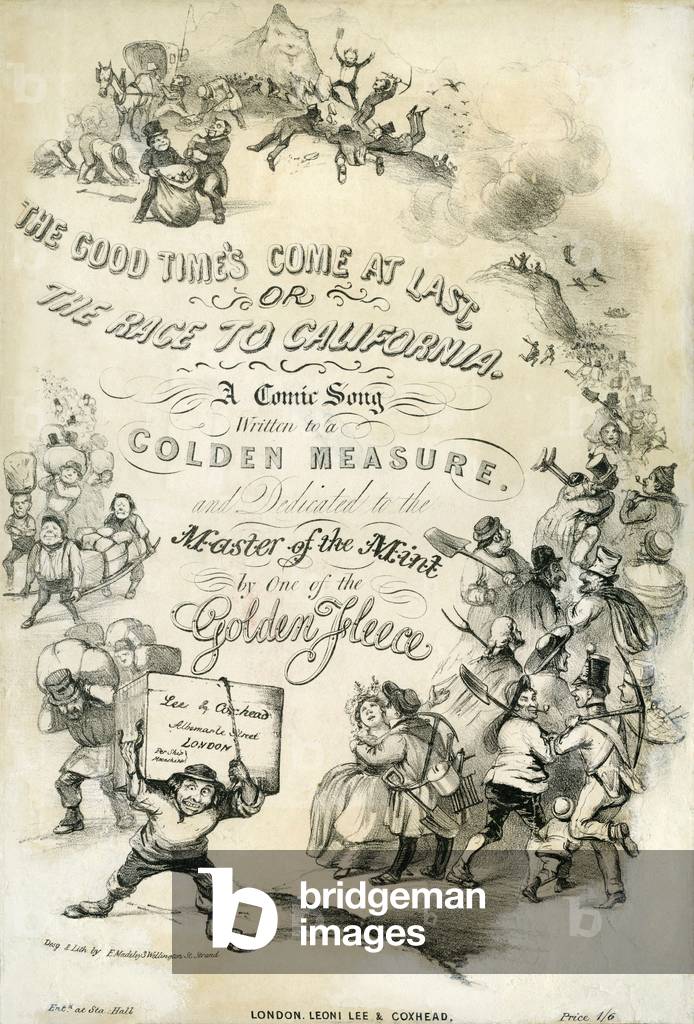 THE GOOD TIME'S COME AT LAST,
OR
THE RACE TO CALIFORNIA.
A Comic Song
Written to a
GOLDEN MEASURE.
and Dedicated to the
Master of the Mint
by One of the
Golden Fleece
Lee & Coxhead
Albemarle Street
LONDON
Per Ship
bridgeman
images
Desg & Lith by E. Madeley 3 Wellington St. Strand
Ent.d at Sta. Hall
LONDON. LEONI LEE & COXHEAD.
Price 1/6